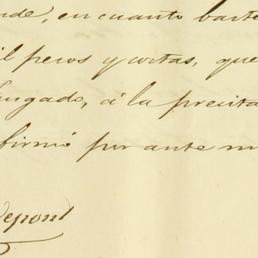 nde, en cuanto baste
il pesos y costas, que
Juzgado, á la precita
firmó por ante m
Depont